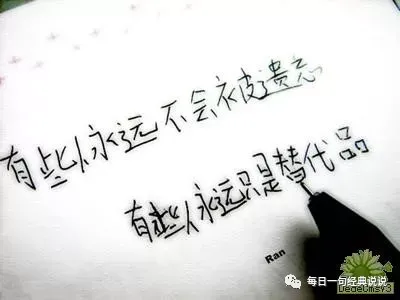 有些人永远不会被遗忘
有些人永远只是替代品
Ran
每日一句经典说说